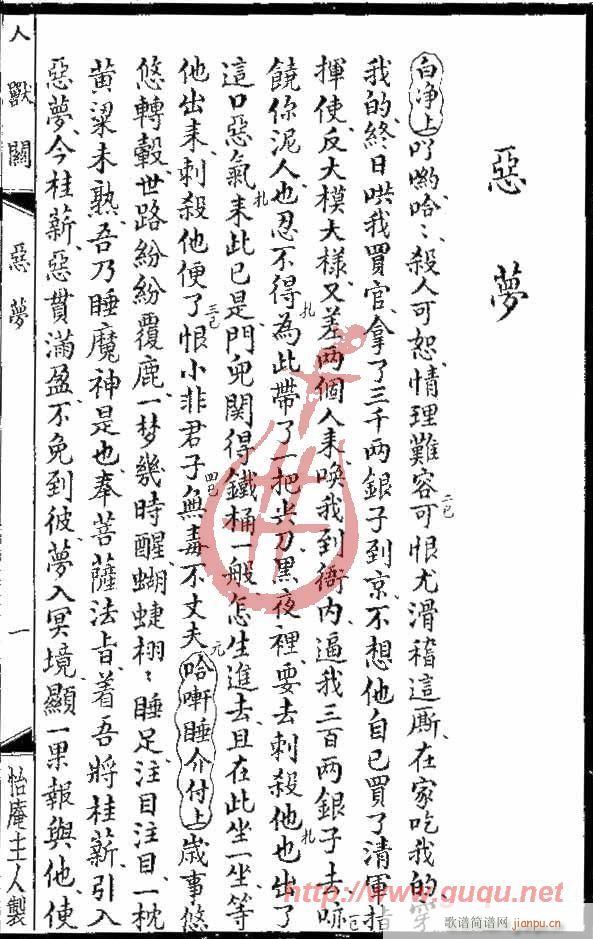 惡夢
白净上吖喲哈〻殺人可恕情理難容可恨尤滑稽這厮在家吃我的穿
我的終日哄我買官拿了三千兩銀子到京不想他自己買了清軍指
揮使反大模大樣又差兩個人来喚我到衙内逼我三百兩銀子去
饒你泥人也忍不得為此帶了一把尖刀黑夜裡要去刺殺他也出了
這口惡氣来此已是門兜関得鐵桶一般怎生進去且在此坐一坐等
他出来刺殺他便了恨小非君子無毒不丈夫哈㖞睡介付上歲事悠
悠轉轂世路紛紛覆鹿一梦幾時醒蝴蝶栩〻睡足注目注目一枕
黄粱未熟吾乃睡魔神是也奉菩薩法旨着吾將桂薪引入
惡夢今桂薪惡貫滿盈不免到彼夢入冥境顯一果報與他使
人獸關
惡夢
一
怡庵主人製
http://www.guqu.net
歌谱简谱网
jianpu.cn